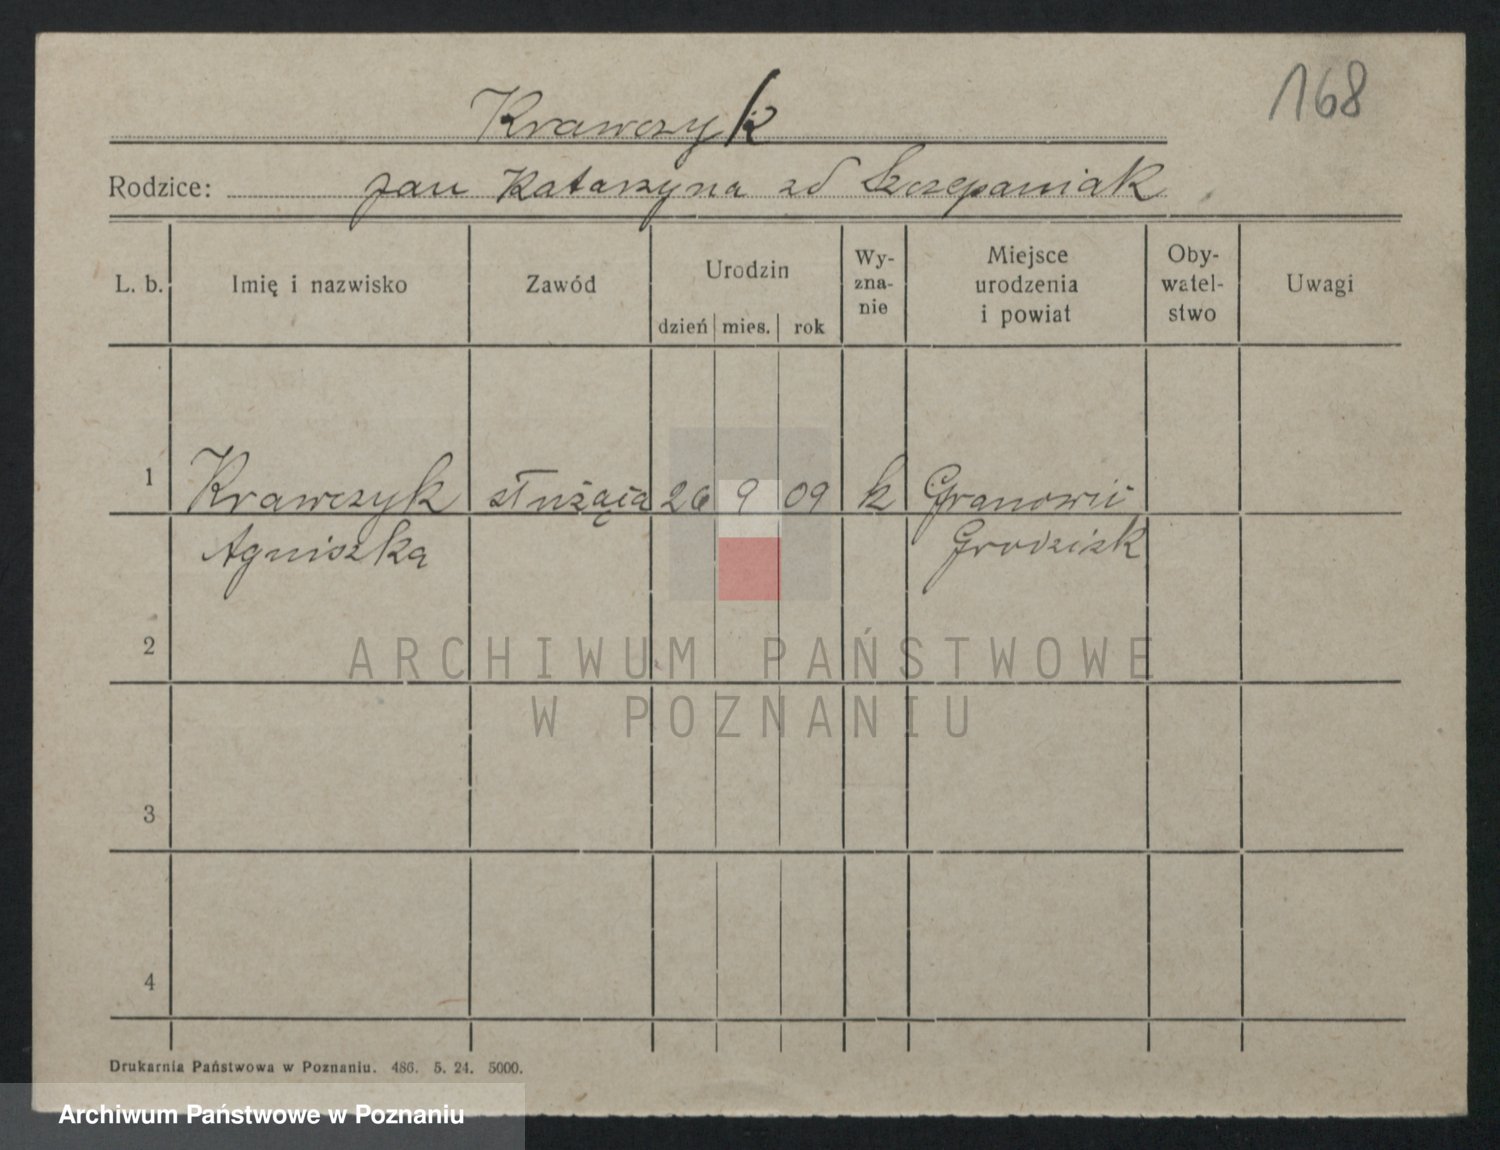 168
Krawczyk
Rodzice: Jan Katarzyna zd Szczepaniak
L. b. Imię i nazwisko Zawód Urodzin dzień mies. rok Wy-zna-nie Miejsce urodzenia i powiat Oby-watel-stwo Uwagi
1 Krawczyk służąca 26 9 09 k
Agniszka Grodzisk
2
ARCHIWUM PAŃSTWOWE
W POZNANIU
3
4
Drukarnia Państwowa w Poznaniu. 486. 5. 24. 5000.
Archiwum Państwowe w Poznaniu